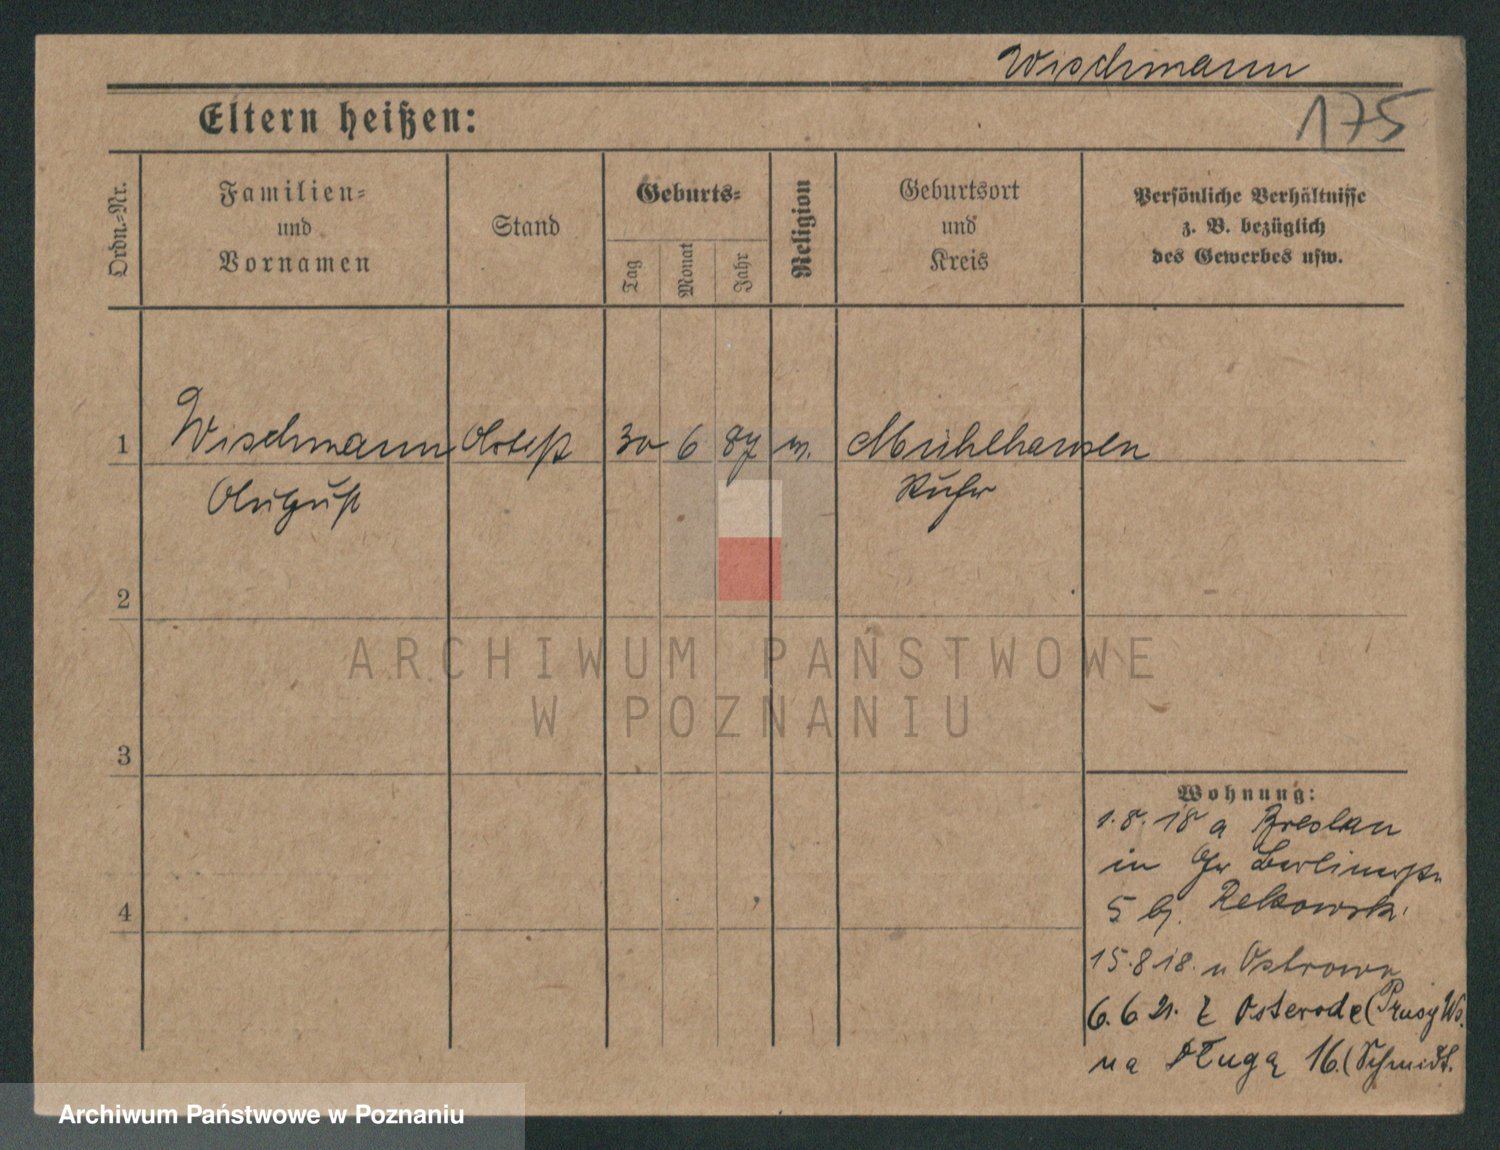 Wischmann
175
Eltern heißen:
Ordn.-Nr.
Familien-
und
Vornamen
Stand
Geburts-
Tag
Monat
Jahr
Religion
Geburtsort
und
Kreis
Persönliche Verhältnisse
z. B. bezüglich
des Gewerbes usw.
1 Wischmann 30 6 87 Mühlhausen
August Ruhr
2
ARCHIWUM PAŃSTWOWE
W POZNANIU
3
Wohnung:
1.8.18 a Breslau
in Berlinerstr
5 bj. Rekowsk.
4
15.8.18. n Ostrowo
6.6 21. z Osterode (Prusy Ws.
na Długą 16. (Schmidt.
Archiwum Państwowe w Poznaniu